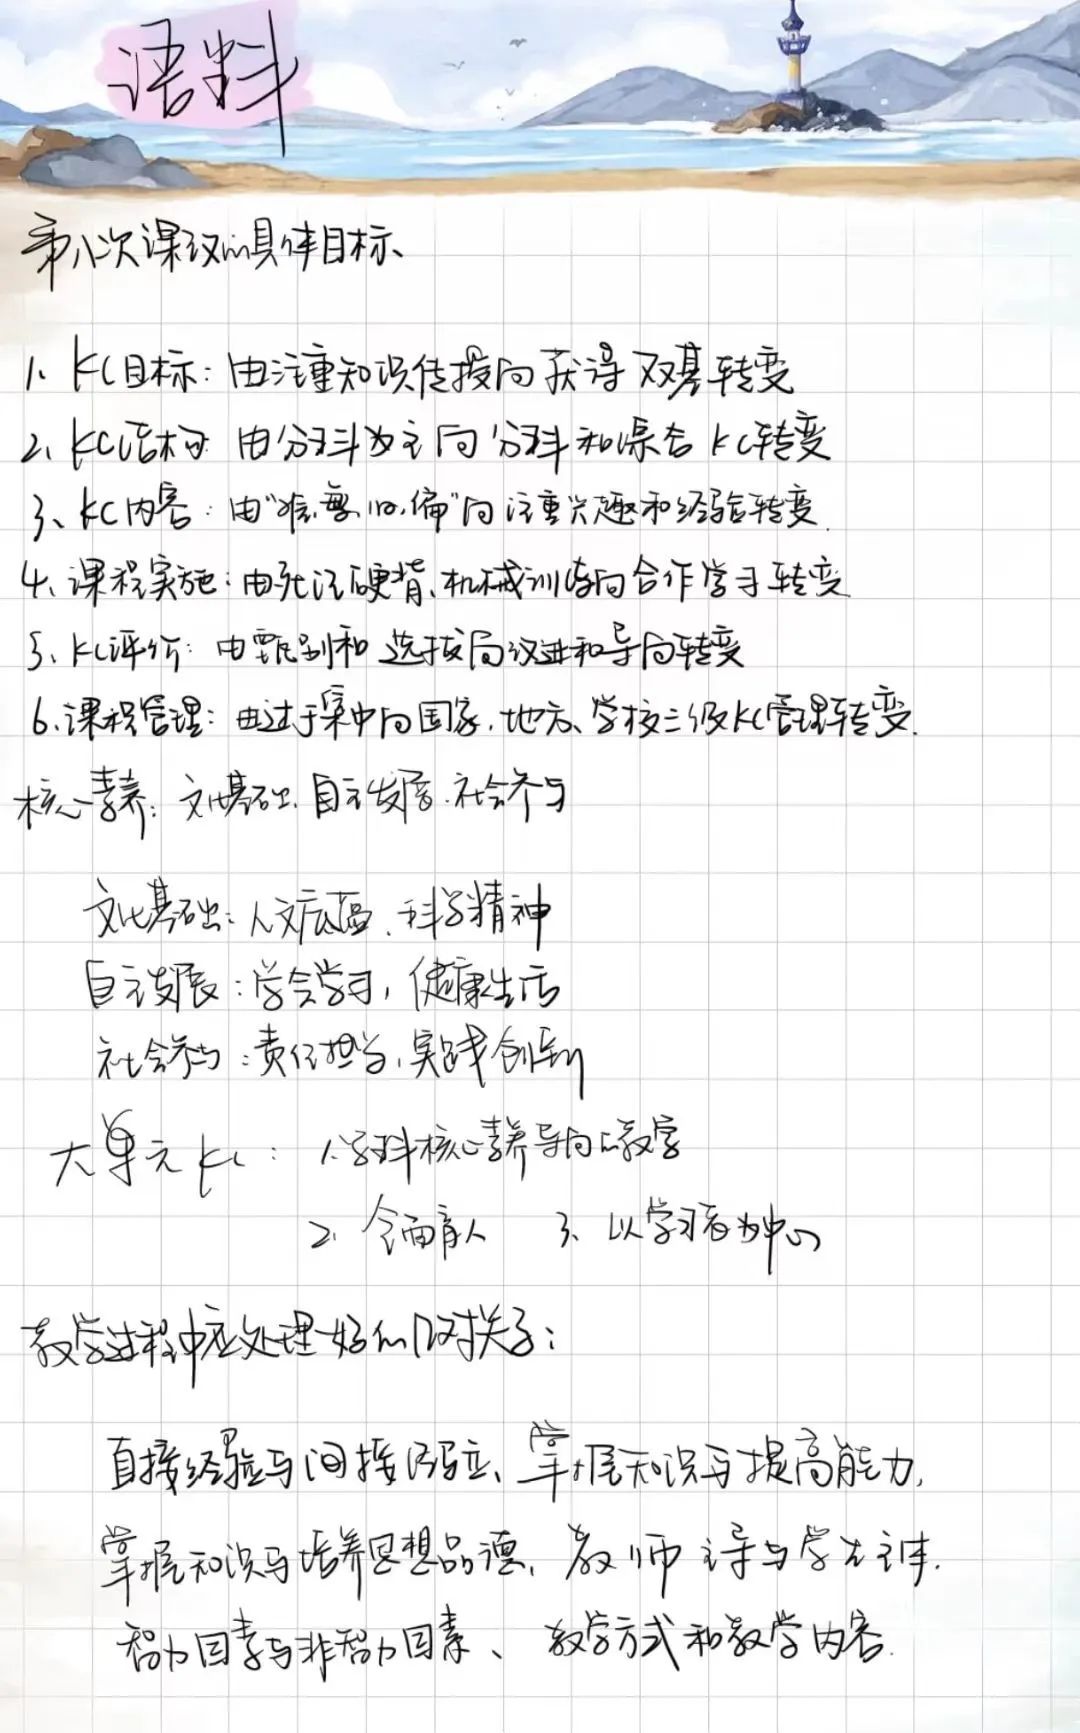 语料
第八次课改的具体目标、
1、KC目标：由注重知识传授向获得双基转变
2、KC结构 由分科为主向分科和综合KC转变
3、KC内容：由“难、繁、旧、偏”向注重兴趣和经验转变.
4、课程实施：由死记硬背、机械训练向合作学习转变
5、KC评价：由甄别和选拔向改进和导向转变
6、课程管理：由过于集中向国家、地方、学校三级KC管理转变.
核心素养：文化基础、自主发展、社会参与
文化基础：人文底蕴、科学精神
自主发展：学会学习，健康生活
社会参与：责任担当、实践创新
大单元KC：1、学科核心素养导向的教学
2、全面育人 3、以学习者为中心
教学过程中应处理好的几对关系：
直接经验与间接经验、掌握知识与提高能力，
掌握知识与培养思想品德，教师主导与学生主体.
智力因素与非智力因素、教学方式和教学内容.